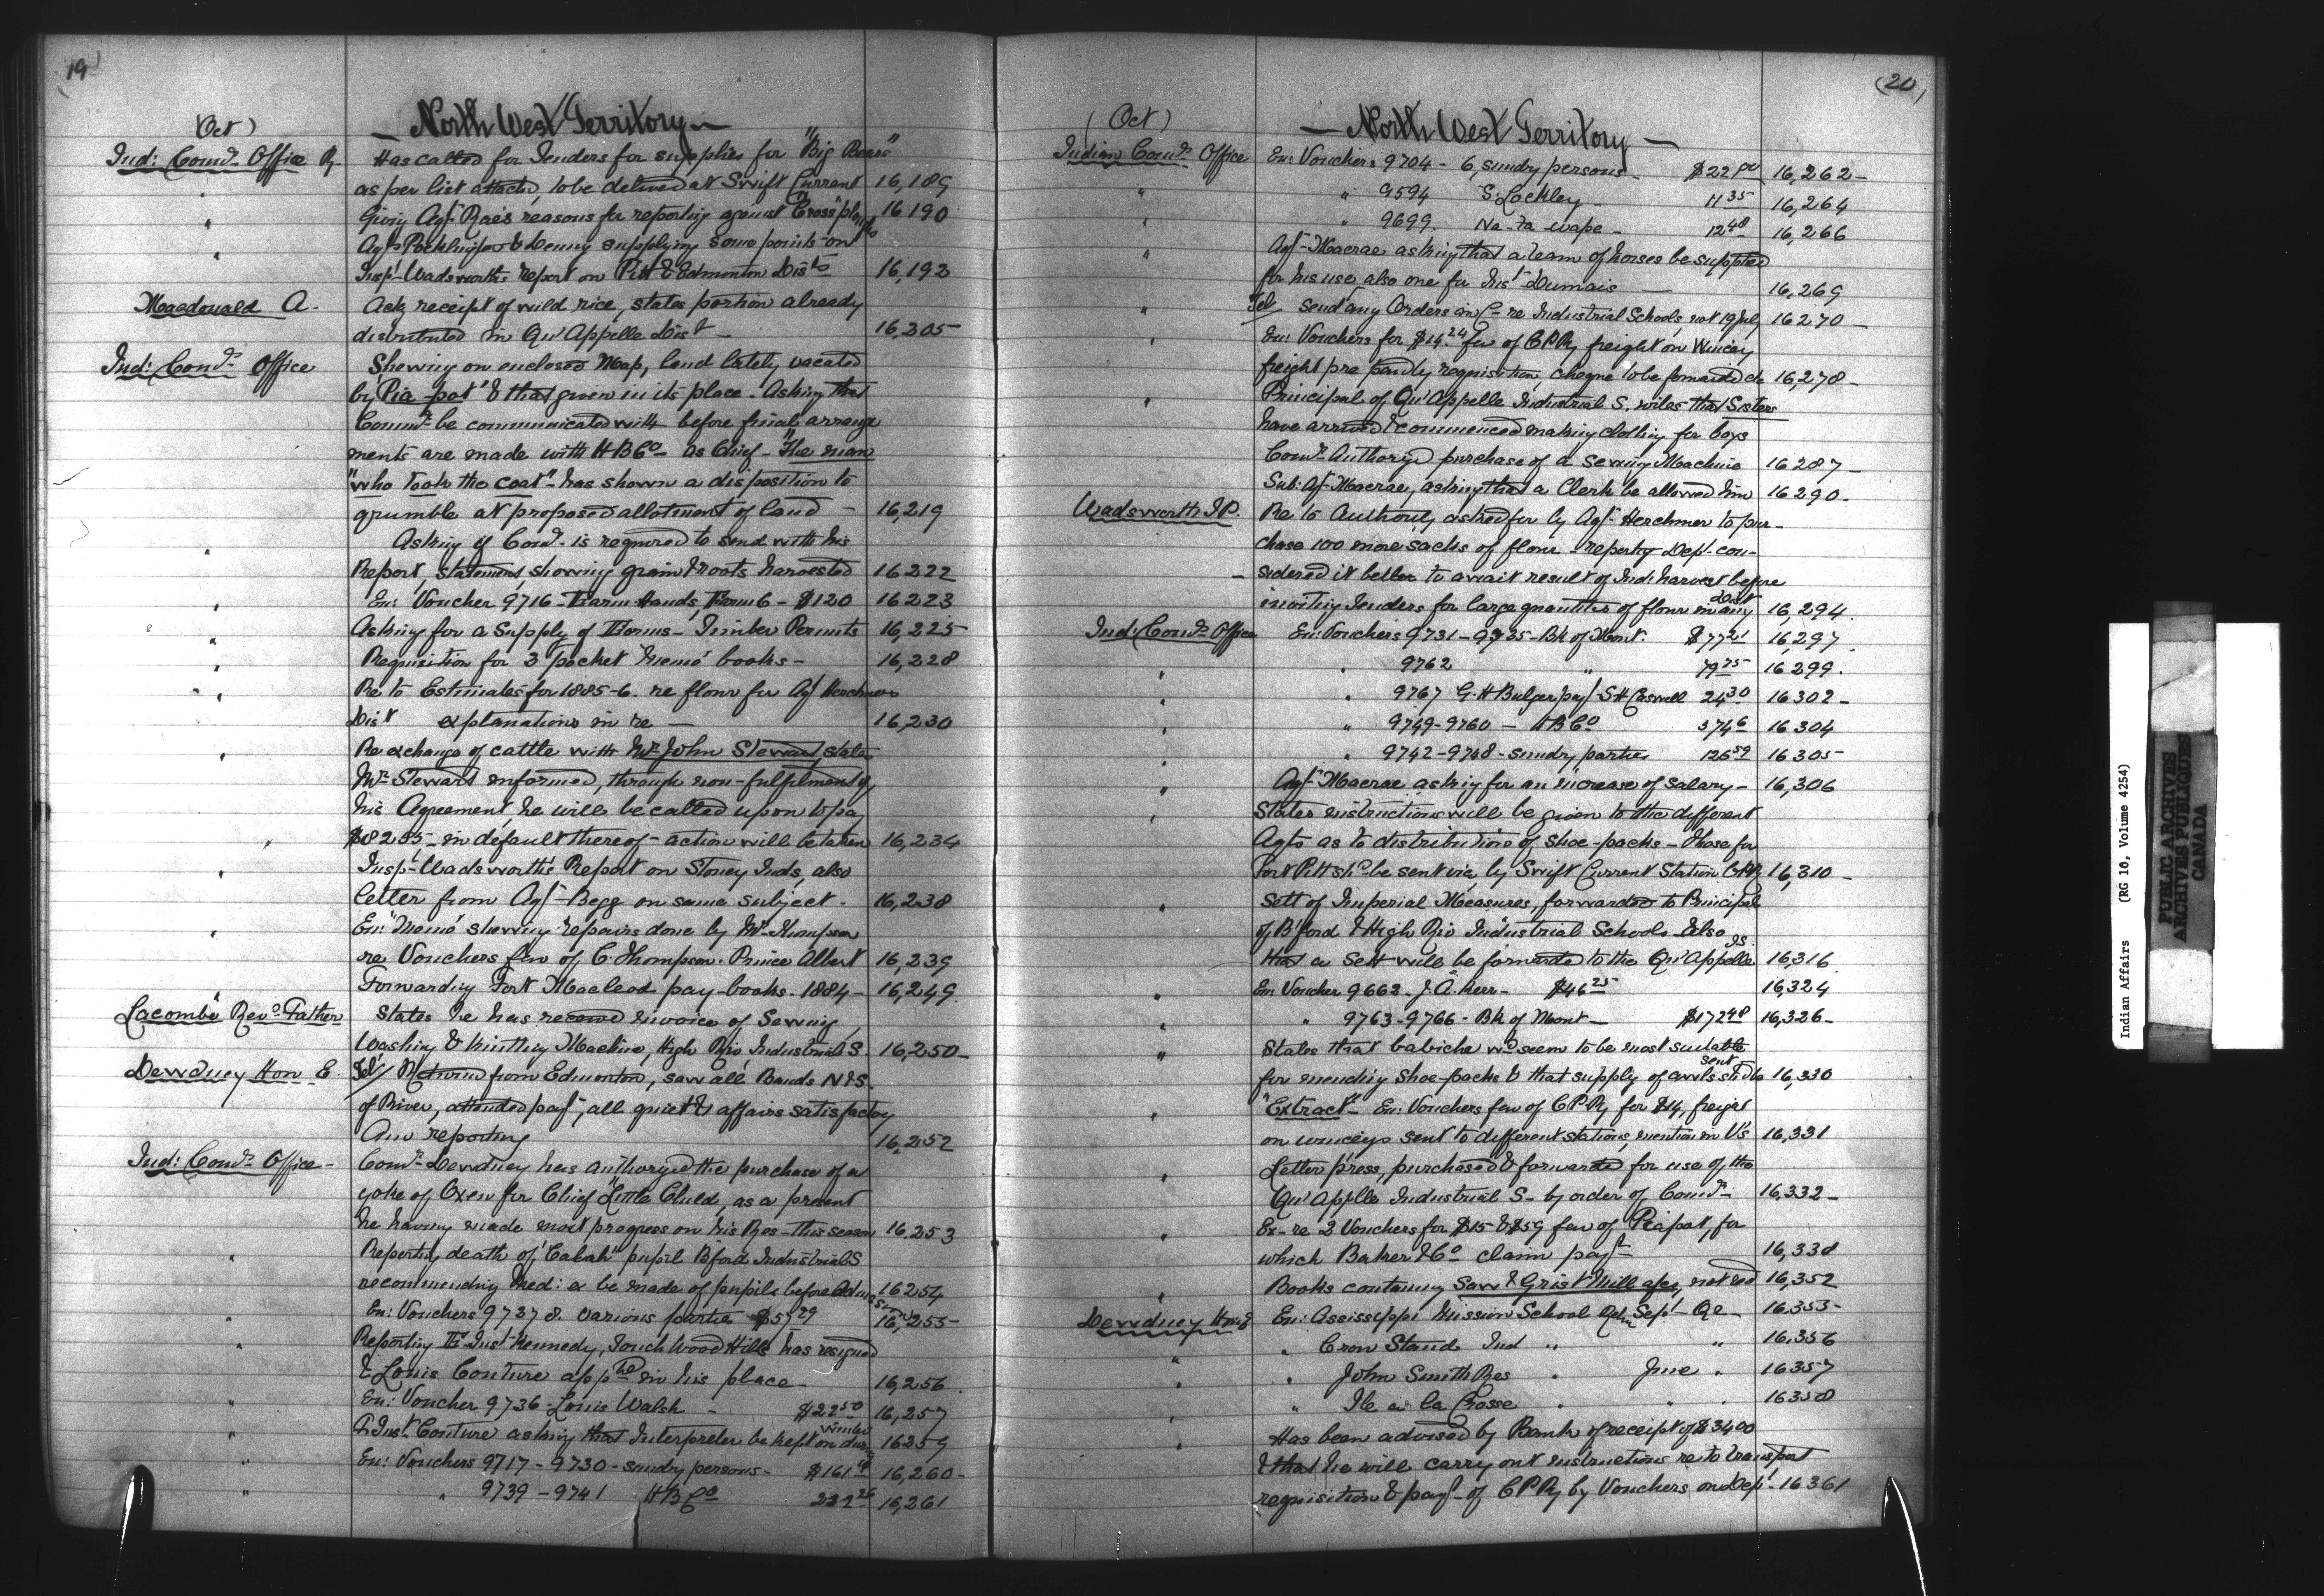 19
(Oct)
— North West Territory —
Ind: Comr. Office R. Has called for Tenders for supplies for "Big Bears"
as per list attached, to be delivered at Swift Current 16,189
" Giving Agt. Rae's reasons for reporting against "Cross" ploughs 16,190
" Agts Pocklington & Denny supplying some points on
Insp. Wadsworth's report on Pitt & Edmonton Dists 16,192
Macdonald A. Ackg receipt of wild rice, states portion already
distributed in Qu'Appelle Dist — 16,205
Ind: Comr. Office Shewing on enclosed Map, land lately vacated
by "Pia-pot" & that given in its place. Asking that
Commr. be communicated with before final arrange
ments are made with H B Co. as Chief — "The man
"who took the coat" has shown a disposition to
grumble at proposed allotment of land — 16,219
" Asking if Comr. is required to send with his
Report, Statement, showing grain & roots harvested 16222
" En: Voucher 9716 - Farm Hands, Farm 6 - $120 16223
" Asking for a Supply of Forms - Timber Permits 16,225
" Requisition for 3 pocket memo' books - 16,228
" Re to Estimates for 1885-6. re flour for Agt Herchmers
Dist explanations in re — 16,230
" Re exchange of cattle with Mr. John Stewart, states
Mr. Stewart informed, through non-fulfilment of
his Agreement, he will be called upon to pay
" $8255 - in default thereof - action will be taken 16,234
" Insp. Wadsworth's Report on Stoney Inds, also
letter from Agt. Begg on same subject. 16,238
" En: "Memo" shewing repairs done by Mr. Thompson
re Vouchers fav of C. Thompson. Prince Albert 16,239
" Forwarding Fort Macleod pay-books. 1884 - 16,249
Lacombe Revd. Father States he has received invoice of Sewing,
Washing & Knitting Machine, High Riv Industrial S. 16,250 -
Dewdney Hon E. Tel/ Returned from Edmonton, saw all Bands N & S.
of River, attended payt, all quiet & affairs satisfactory
Am reporting 16,252
Ind: Comr. Office - Comr. Dewdney has authorized the purchase of a
yoke of Oxen for Chief "Little Child, as a present
he having made most progress on his Res - this season 16,253
" Reporting death of "Calah" pupil B'ford Industrial S
recommending Med: ex be made of pupils before admission 16254
" En: Vouchers 9737 8. various parties $57 29 16,255 -
" Reporting F. Inst. Kennedy, Touchwood Hills has resigned
& Louis Couture apptd in his place - 16,256
" En: Voucher 9736 - Louis Walsh - $22 50 16,257
" F. Inst. Couture asking that Interpreter be kept on during winter 16259
" En: Vouchers 9717 - 9730 - sundry persons - $161 16,260 -
" " 9739 - 9741 H B Co 16,261
(20)
(Oct)
— North West Territory —
Indian Comr. Office En: Vouchers 9704 - 6, sundry persons - $22 16,262 -
" " 9594 S. Lockley - 11 35 16,264
" " 9699. Na-ta-wape - 12 48 16,266
" Agt. Macrae asking that a team of horses be supplied
for his use, also one for Inst. Dumais — 16,269
" Tel/ send any Orders in C - re Industrial Schools, not 19 July 16270 -
" En: Vouchers for $14.24 fav of C P Ry freight on Wincey
freight pre paid by requisition, cheque to be forwarded &c 16,278 -
" Principal of Qu'Appelle Industrial S. wires that Sisters
have arrived & commenced making clothing for boys
Comr. Authorizd purchase of a Sewing Machine 16287 -
Sub: Agt. Macrae, asking that a Clerk be allowed him 16290 -
Wadsworth T.P. Re to Authority asked for by Agt. Herchmer to pur -
chase 100 more sacks of flour - reporting Dept. con -
- sidered it better to await result of Ind: harvest before
inviting Tenders for large quantities of flour in any Dist 16,294
Ind: Comr. Office En: Vouchers 9731 - 9735 - Bk of Mont. $77 21 16,297
" " 9762 " 79 75 16299.
" " 9767 G. H Bulger pay S H Caswell 24 30 16302 -
" " 9749 - 9760 — H B Co 574 6 16304
" " 9742 - 9748 - sundry parties 126 59 16305
" Agt. Macrae asking for an increase of salary - 16,306
" States instructions will be given to the different
Agts as to distribution of shoe-packs - Those for
Fort Pitt shd be sent via, by Swift Current Station C P Ry 16,310 -
" Sett of Imperial Measures, forwarded to Principals
of B'ford & High Riv Industrial Schools - also
that a sett will be forwarded to the Qu'Appelle Is. 16,316
" En: Voucher 9662 - J. A. Kerr - $46 25 16,324
" " 9763 - 9766 - Bk of Mont - $172 48 16,326 -
" States that babiche wd seem to be most suitable
for mending shoe-packs & that supply of awls shd be sent 16,330
" "Extract" - En: Vouchers fav of C P Ry for $14, freight
on winceys sent to different stations, mention in V's 16,331
" Letter press, purchased & forwarded for use of the
Qu'Appelle Industrial S - by order of Comr. - 16,332 -
" Ex - re 2 Vouchers for $15 & $59 fav of Piapot, for
which Baker & Co claim payt - 16,338
" Books containing Saw & Grist Mill a/cs, not recd 16,352
Dewdney Hon E En: Assissippi Mission School Retn Sept - Qr - 16,353 -
" " Cron Stand Ind " " 16,356
" " John Smith Res " June " 16357
" " Ile a la Crosse " " 16358
" Has been advised by Bank of receipt of $3400
& that he will carry out instructions re to transport
requisition & payt. of C P Ry by Vouchers on Dept. 16361
Indian Affairs (RG 10, Volume 4254)
PUBLIC ARCHIVES
ARCHIVES PUBLIQUES
CANADA